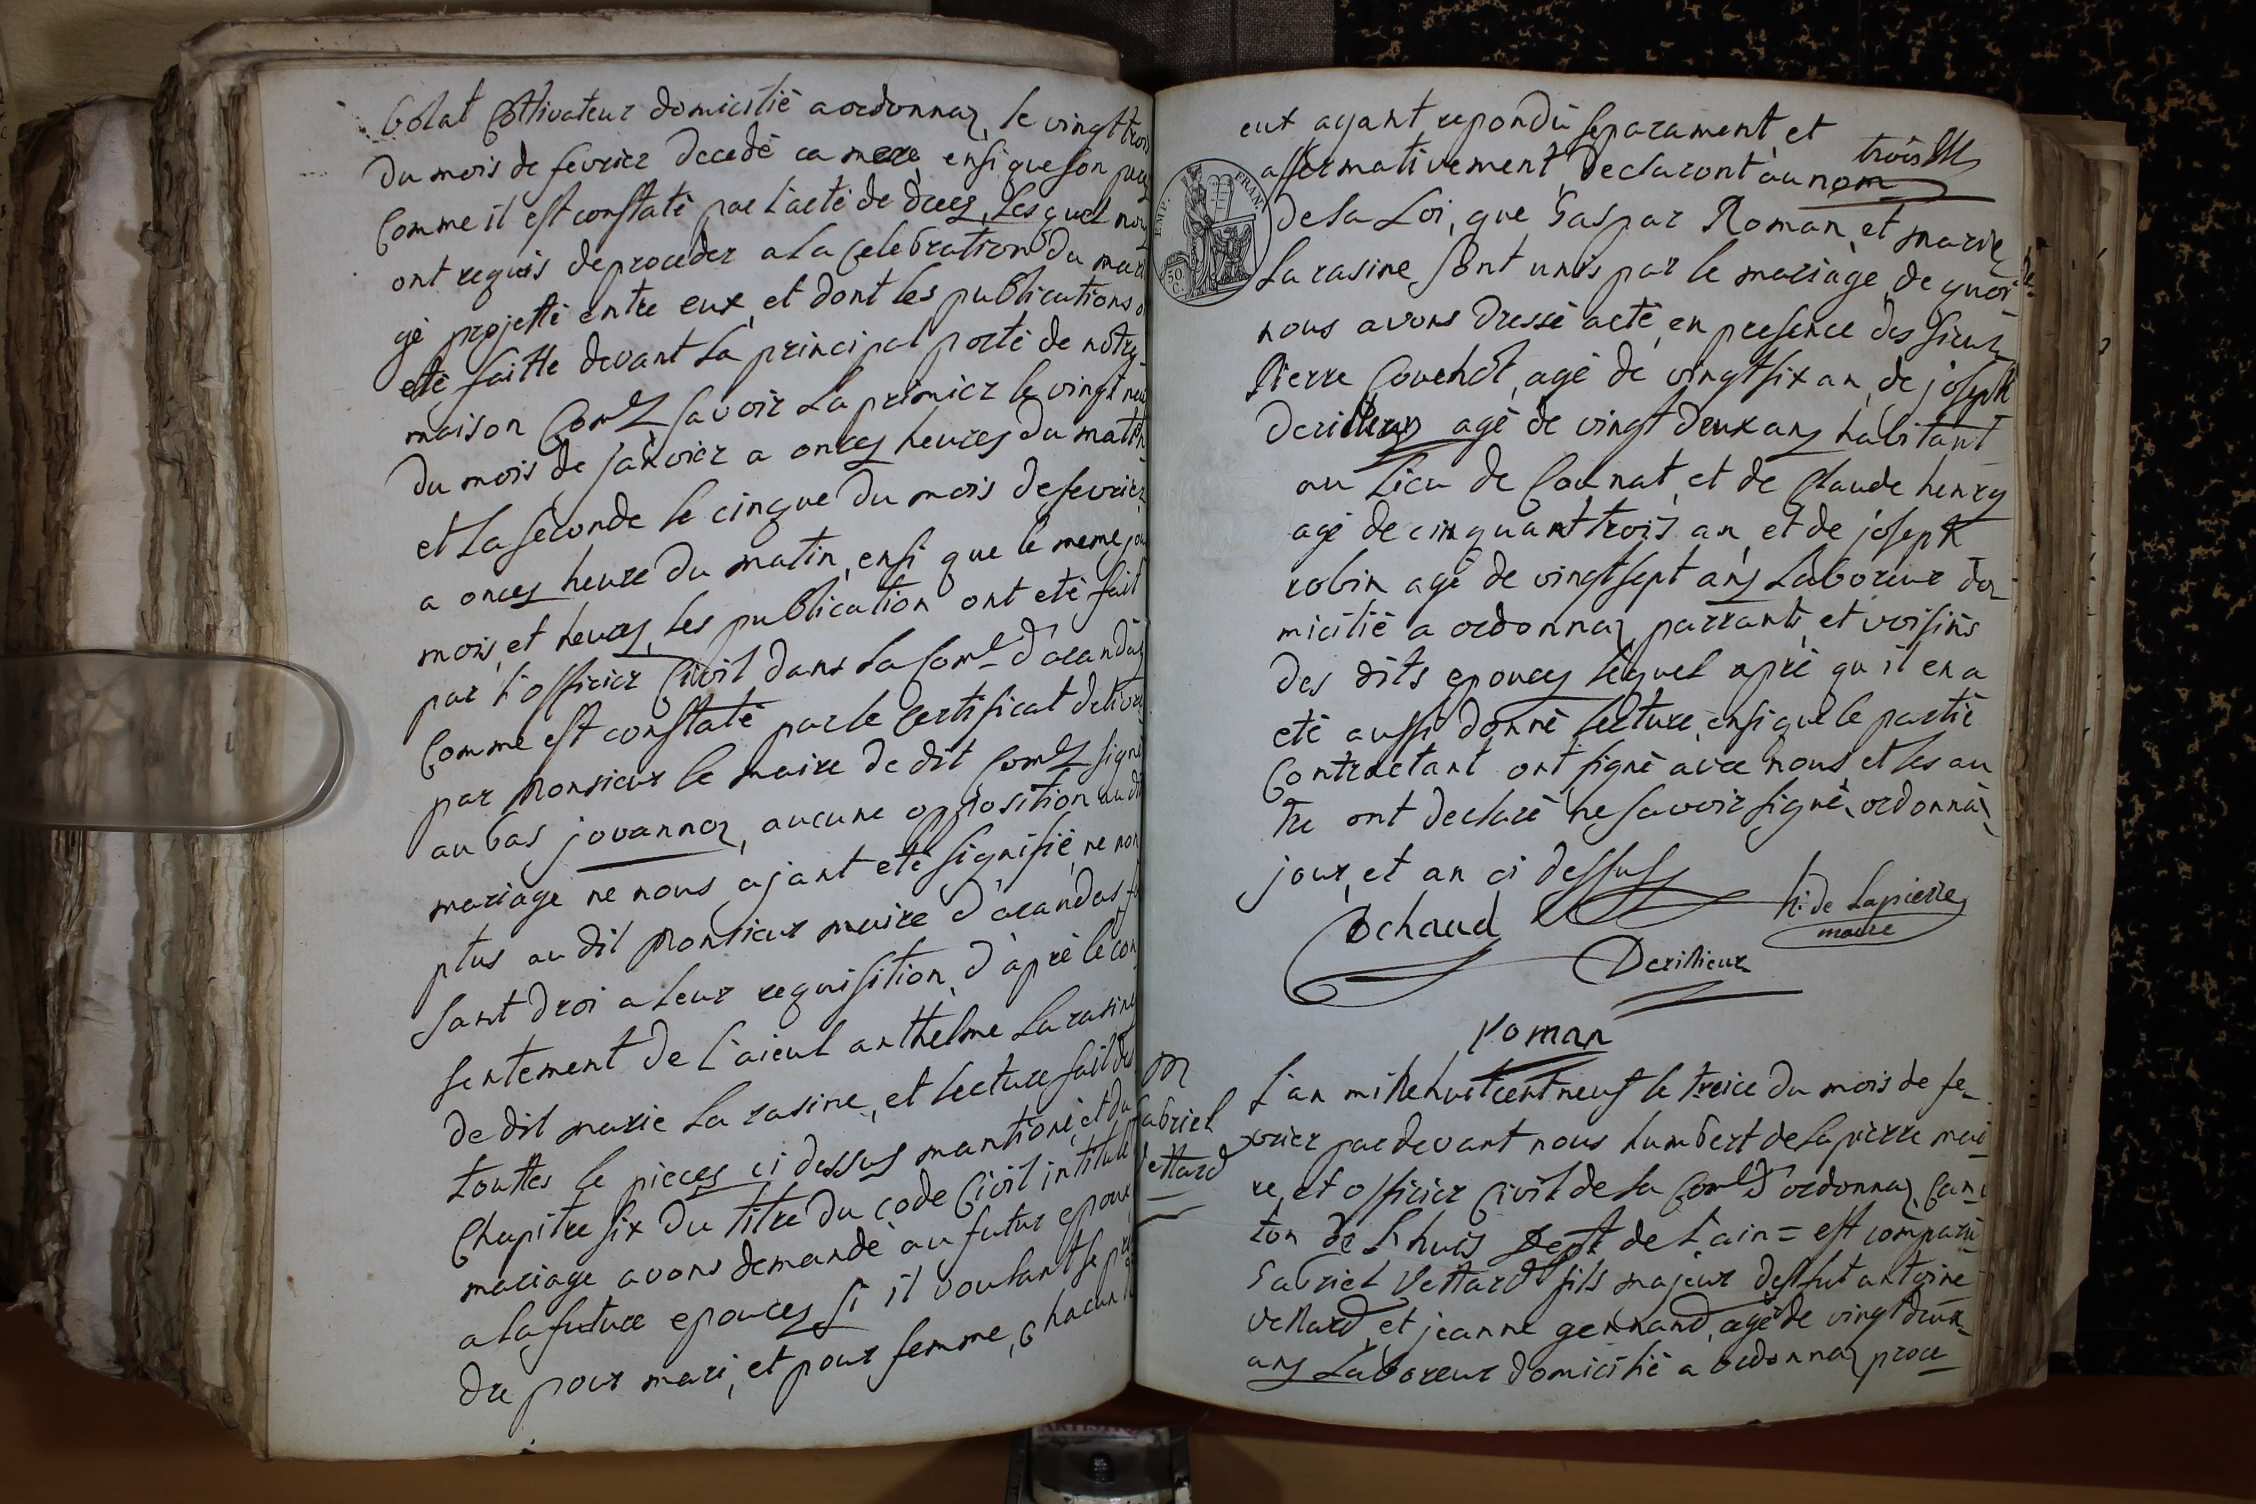 Golat Coltivateur domicilié a ordonnaz, le vingt trois
du mois de fevrier decedé ca mere, ensi que son pere
Comme il est constaté par l'acte de deces, Lesquel nous
ont requis de proceder a La Celebration du maria
ge projetté entre eux, et dont les publications o
eté faitte devant La principal porte de notre
maison Comle savoir La primier le vingt neuf
du mois de janvier a onces heures du matin
et La seconde le cinque du mois de fevrier
a onces heure du matin, ensi que le meme jou
mois, et heures, les publication ont eté fait
par l'officier Civil dans La Comle d'arandas
Comme est constaté par le Certificat delivré
par Monsieur le maire de dit Comle signé
au bas jouannaz, aucune opposition au dit
mariage ne nous ajant eté signifié, ne non
plus au dit Monsieur maire d'arandas, fe
sant droi a leur requisition, d'aprè le con
sentement de l'aieul anthelme La rasine
de dit marie La rasine, et lecture fait des
touttes le pieces ci dessus mantioné, et du
Chapitre six du titre du code Civil intitulé
mariage avons demandé au futur epoux
a la future epouces si il voulant se pren
dre pour mari, et pour femme, chacun d
eux ayant repondu separament, et
affirmativement, declaront au nom
trois
EMP. FRAN.
50 C.
de la Loi, que Gaspar Roman, et marie
La rasine, sont unis par le mariage, de quoi
nous avons dressé acte, en presence des sieur
Pierre Cochot, agé de vingt six an, de joseph
Derillieux agé de vingt deux ans habitant
au Lieu de Counat, et de Claude henry
agé de cinquant trois an, et de joseph
robin agé de vingt sept ans Laboreur do
micilié a ordonnaz, parrants, et voisins
des dits epouces lequel aprè qu'il en a
eté aussi donné lecture, ensi que le partie
Contractant ont signé avec nous, et les au
tre ont declaré ne savoir signé, ordonnaz
jour, et an ci dessus
Cochaud
h. de Lapierre
maire
Derillieux
roman
M
Gabriel
Vettard
L'an mille huit cent neuf le treice du mois de fe
vrier par devant nous humbert de Lapierre mai
re, et officier Civil de la Comle d'ordonnaz, Can
ton de Lhuis Dept de L'ain = est comparu
Gabriel Vettard fils majeur de fut antoine
Vettard, et jeanne gennand, agé de vingt deux
ans Laboreur domicilié a ordonnaz proce